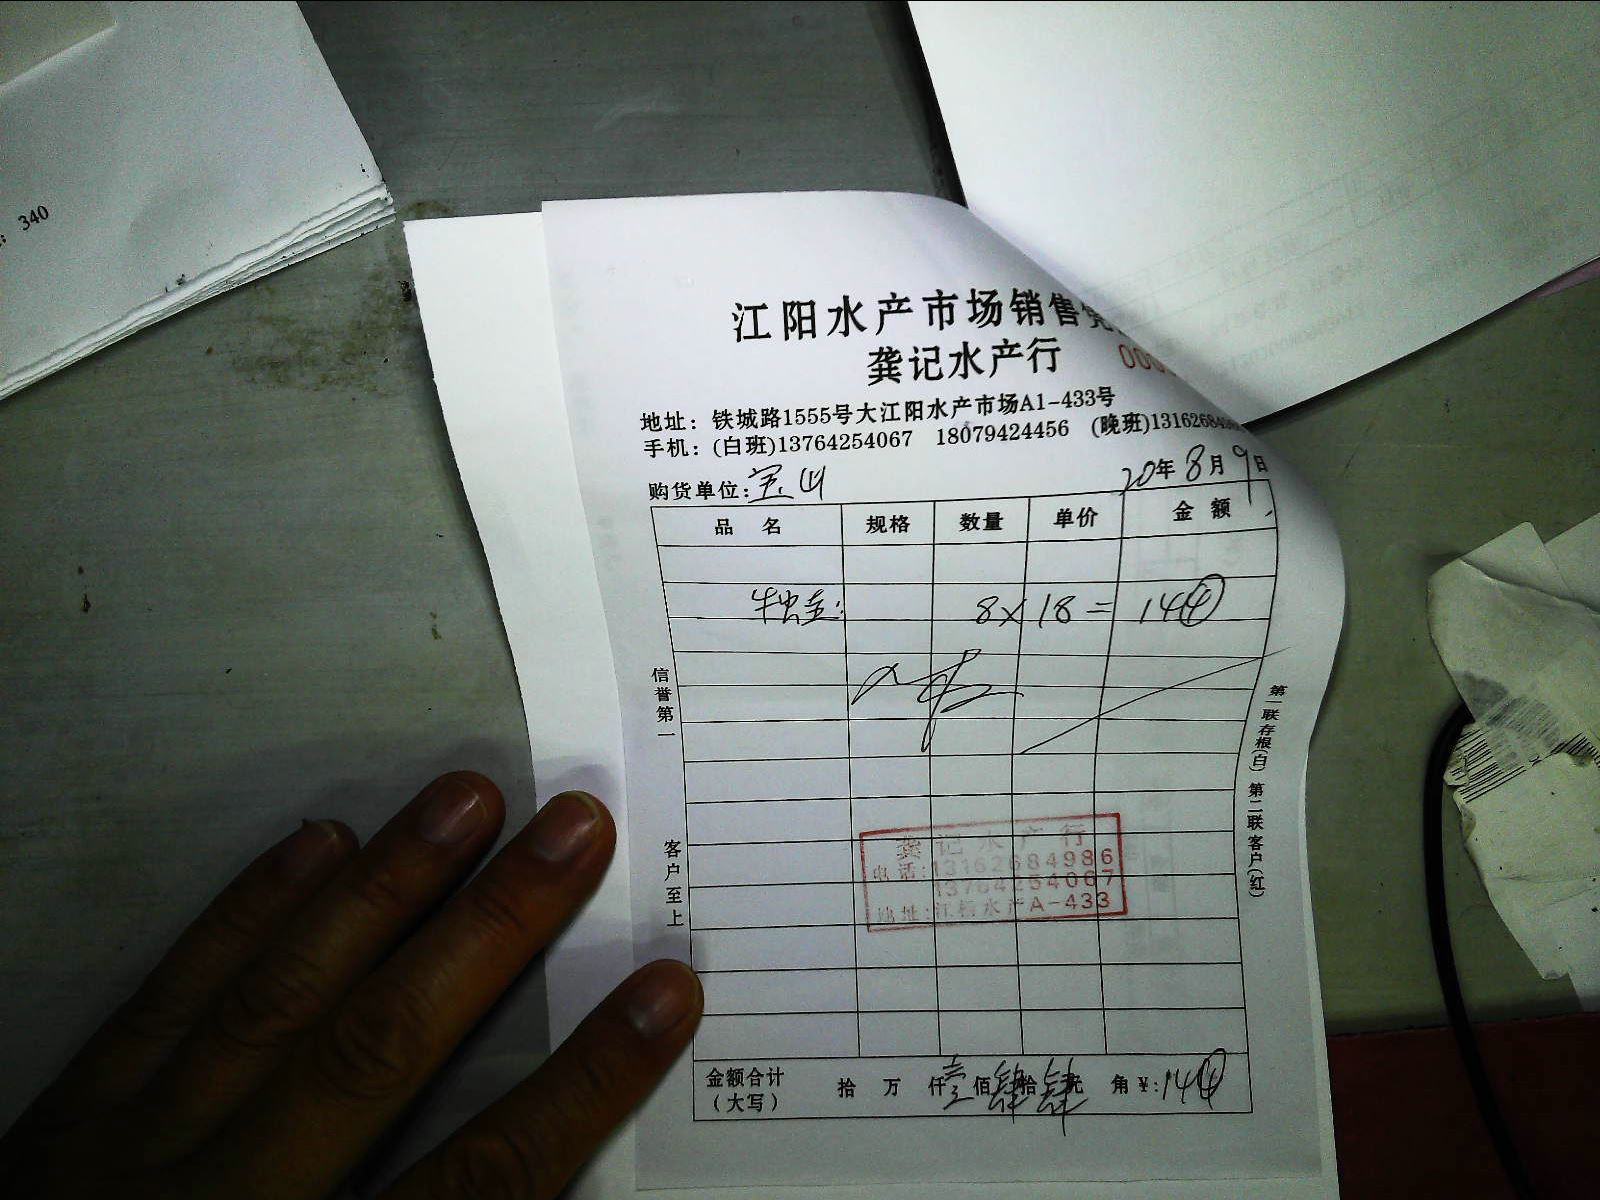 : 340
江阳水产市场销售凭
龚记水产行
000
地址: 铁城路1555号大江阳水产市场A1-433号
手机: (白班)13764254067 18079424456 (晚班)131626849
购货单位: 宝山 20年8月9日
品 名 规格 数量 单价 金 额
8 × 18 = 144
信誉第一
客户至上
第一联存根(白) 第二联客户(红)
龚记水产行
电话:13162684986
13764254067
地址:江杨水产A-433
金额合计 拾 万 仟壹佰肆拾肆元 角 ¥:144
(大写)